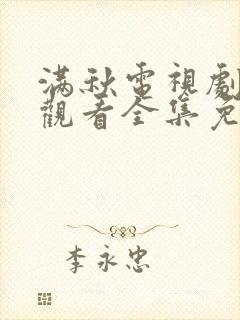 满秋電視劇
觀看全集免
李永忠